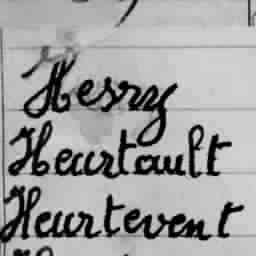 Hesry
Heurtault
Heurtevent